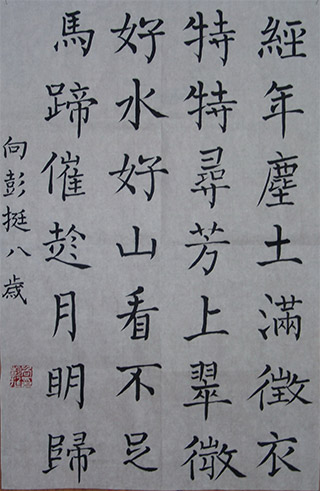 經年塵土滿徵衣
特特尋芳上翠微
好水好山看不足
馬蹄催趁月明歸
向彭挺八歲